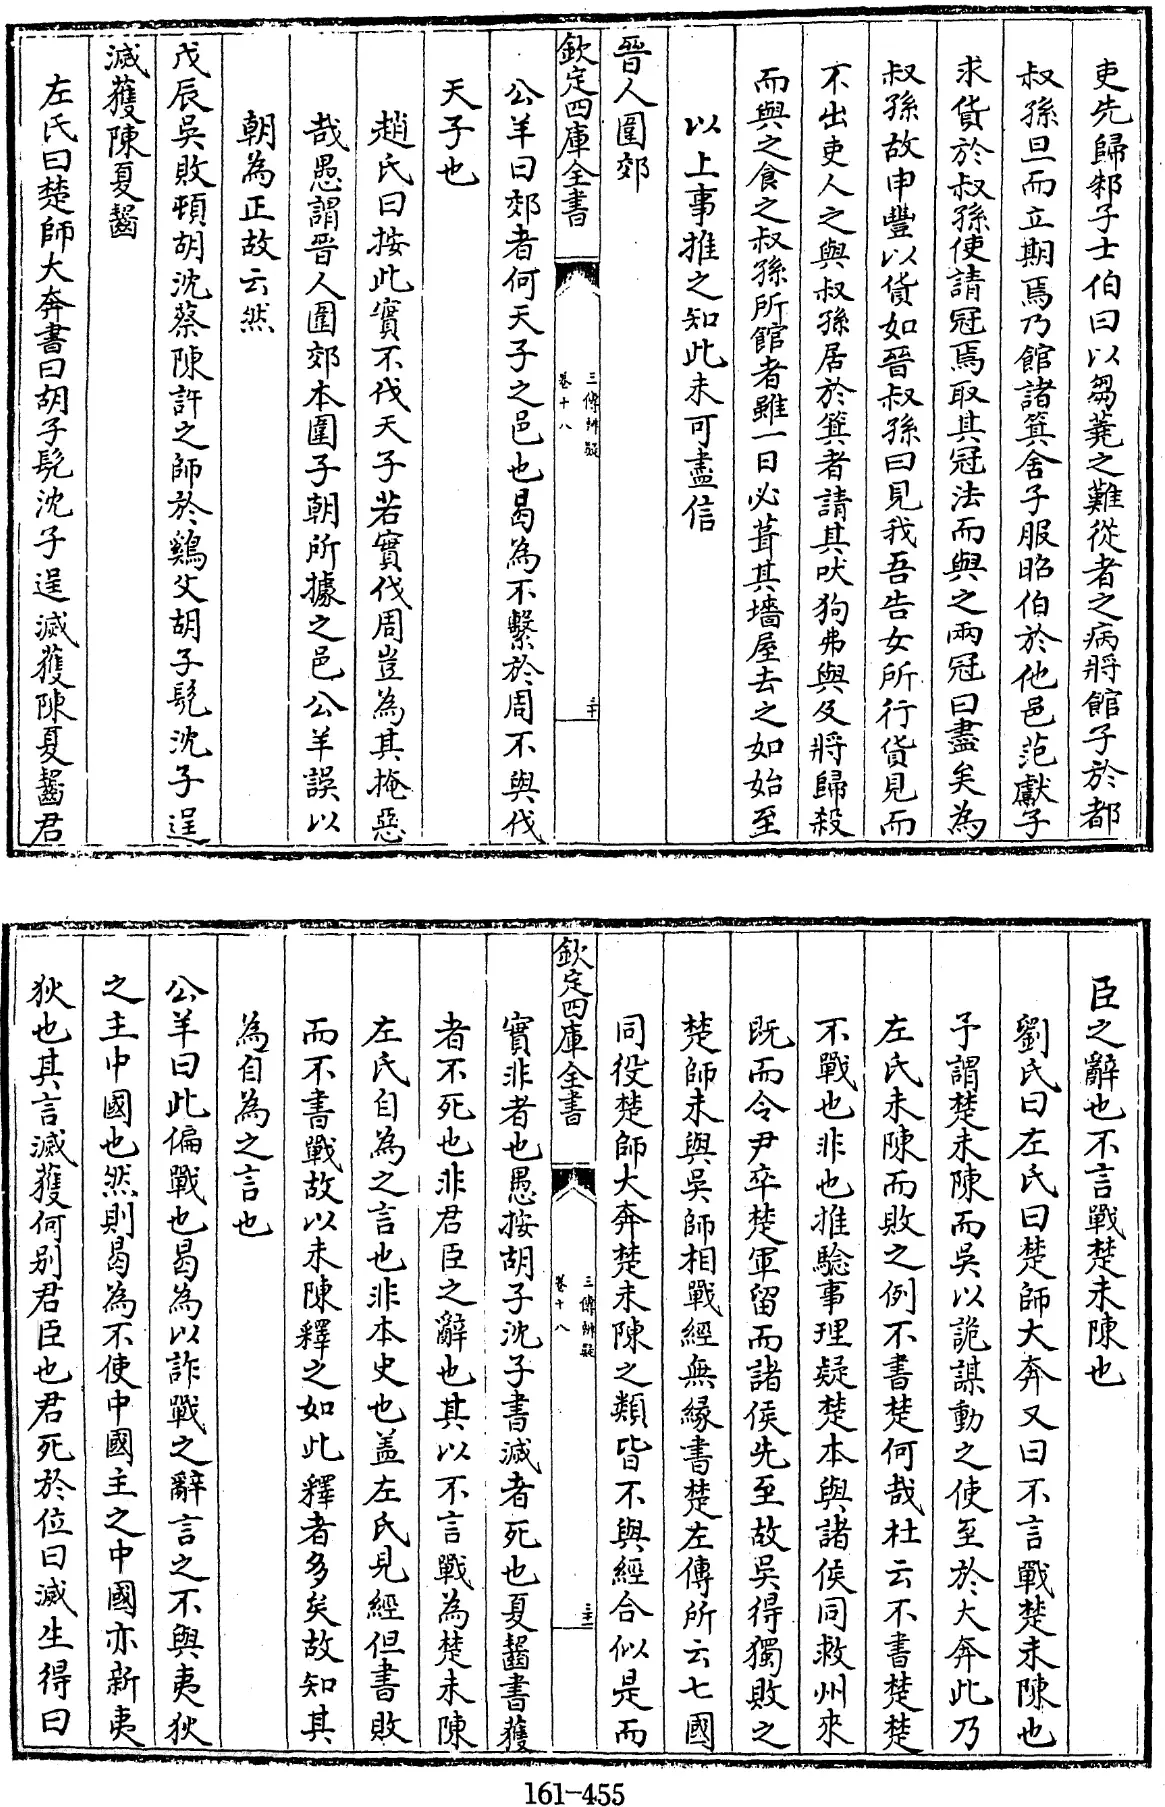 吏先歸邾子士伯曰以芻蕘之難從者之病將館子於都
叔孫旦而立期焉乃館諸箕舍子服昭伯於他邑范獻子
求貨於叔孫使請冠焉取其冠法而與之兩冠曰盡矣為
叔孫故申豐以貨如晉叔孫曰見我吾告女所行貨見而
不出吏人之與叔孫居於箕者請其吠狗弗與及將歸殺
而與之食之叔孫所館者雖一日必葺其墻屋去之如始至
以上事推之知此未可盡信
晉人圍郊
欽定四庫全書
三傳辨疑
卷十八
三十
公羊曰郊者何天子之邑也曷為不繫於周不與伐
天子也
趙氏曰按此實不伐天子若實伐周豈為其掩惡
哉愚謂晉人圍郊本圍子朝所據之邑公羊誤以
朝為正故云然
戊辰吳敗頓胡沈蔡陳許之師於鷄父胡子髡沈子逞
滅獲陳夏齧
左氏曰楚師大奔書曰胡子髡沈子逞滅獲陳夏齧君
臣之辭也不言戰楚未陳也
劉氏曰左氏曰楚師大奔又曰不言戰楚未陳也
予謂楚未陳而吳以詭謀動之使至於大奔此乃
左氏未陳而敗之例不書楚何哉杜云不書楚楚
不戰也非也推驗事理疑楚本與諸侯同救州來
既而令尹卒楚軍留而諸侯先至故吳得獨敗之
楚師未與吳師相戰經無緣書楚左傳所云七國
同役楚師大奔楚未陳之類皆不與經合似是而
欽定四庫全書
三傳辨疑
卷十八
三十一
實非者也愚按胡子沈子書滅者死也夏齧書獲
者不死也非君臣之辭也其以不言戰為楚未陳
左氏自為之言也非本史也盖左氏見經但書敗
而不書戰故以未陳釋之如此釋者多矣故知其
為自為之言也
公羊曰此偏戰也曷為以詐戰之辭言之不與夷狄
之主中國也然則曷為不使中國主之中國亦新夷
狄也其言滅獲何別君臣也君死於位曰滅生得曰
161-455